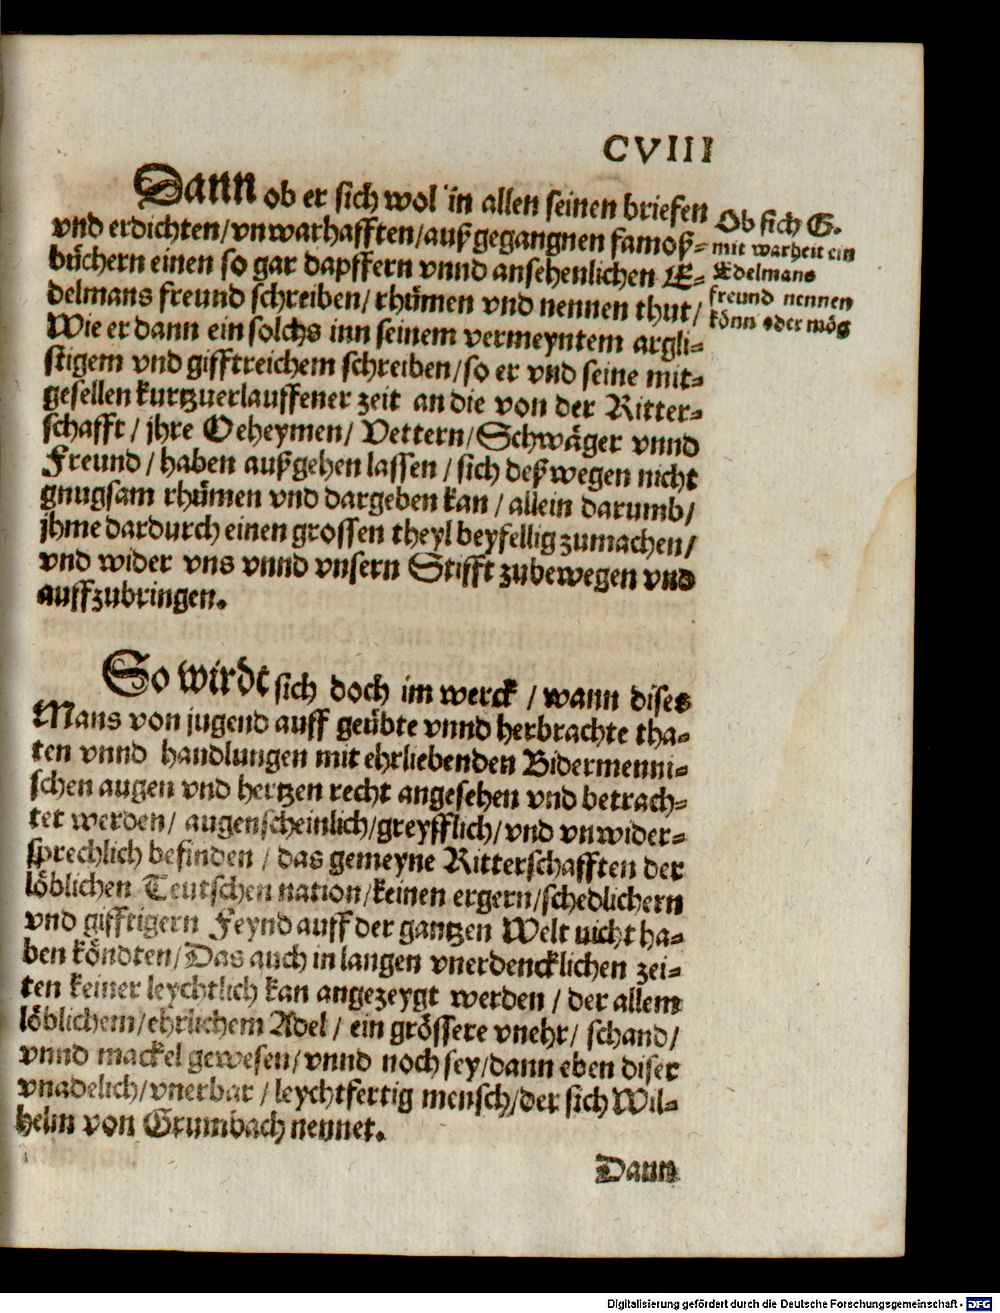 CVIII
Dann ob er sich wol in allen seinen briefen
vnd erdichten/vnwarhafften/außgegangnen famoß-
büchern einen so gar dapffern vnnd ansehenlichen E-
delmans freund schreiben/rhümen vnd nennen thut/
Wie er dann ein solchs inn seinem vermeyntem argli-
stigem vnd gifftreichem schreiben/so er vnd seine mit-
gesellen kurtzuerlauffener zeit an die von der Ritter-
schafft/jhre Oeheymen/Vettern/Schwäger vnnd
Freund/haben außgehen lassen/sich deßwegen nicht
gnugsam rhümen vnd dargeben kan/allein darumb/
jhme dardurch einen grossen theyl beyfellig zumachen/
vnd wider vns vnnd vnsern Stifft zubewegen vnd
auffzubringen.
Ob sich G.
mit warheit ein
Adelmans
freund nennen
könn oder mög
So wirdt sich doch im werck/wann dises
Mans von jugend auff geübte vnnd herbrachte tha-
ten vnnd handlungen mit ehrliebenden Bidermenni-
schen augen vnd hertzen recht angesehen vnd betrach-
tet werden/augenscheinlich/greyfflich/vnd vnwider-
sprechlich befinden/das gemeyne Ritterschafften der
löblichen Teutschen nation/keinen ergern/schedlichern
vnd gifftigern Feynd auff der gantzen Welt nicht ha-
ben köndten/Das auch in langen vnerdencklichen zei-
ten keiner leychtlich kan angezeygt werden/der allem
löblichem/ehrlichem Adel/ein grössere vnehr/schand/
vnnd mackel gewesen/vnnd noch sey/dann eben diser
vnadelich/vnerbar/leychtfertig mensch/der sich Wil-
helm von Grumbach nennet.
Dann
Digitalisierung gefördert durch die Deutsche Forschungsgemeinschaft - DFG